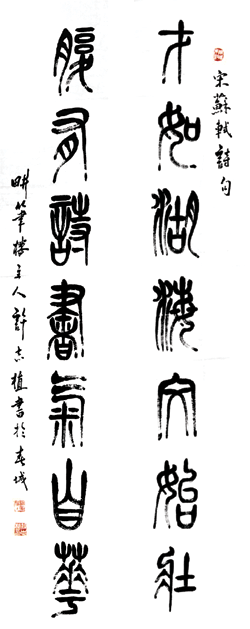 宋蘇軾詩句
才如湖海文始壯
腹有詩書氣自華
畊筆樓主人許植書於春城